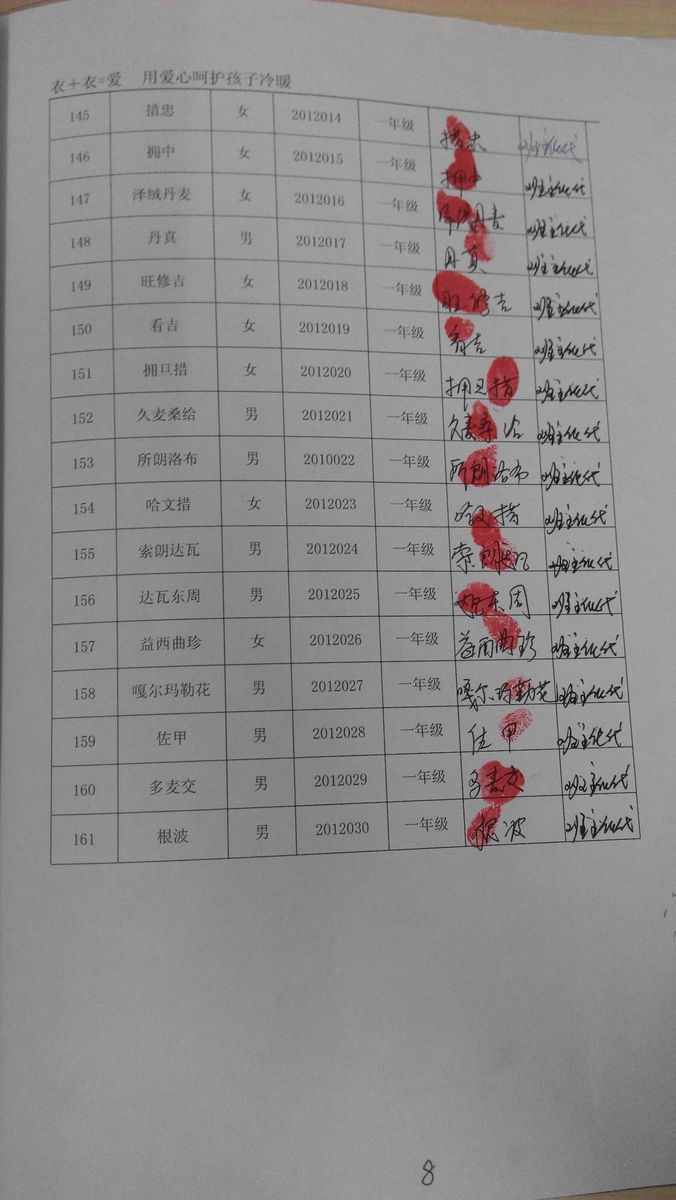 衣＋衣=爱 用爱心呵护孩子冷暖
145 措忠 女 2012014 一年级 措忠
146 拥中 女 2012015 一年级 拥中
147 泽绒丹麦 女 2012016 一年级 泽绒丹麦
148 丹真 男 2012017 一年级 丹真
149 旺修吉 女 2012018 一年级 旺修吉
150 看吉 女 2012019 一年级 看吉
151 拥旦措 女 2012020 一年级 拥旦措
152 久麦桑给 男 2012021 一年级 久麦桑给
153 所朗洛布 男 2010022 一年级 所朗洛布
154 哈文措 女 2012023 一年级 哈文措
155 索朗达瓦 男 2012024 一年级 索朗达瓦
156 达瓦东周 男 2012025 一年级 达瓦东周
157 益西曲珍 女 2012026 一年级 益西曲珍
158 嘎尔玛勒花 男 2012027 一年级 嘎尔玛勒花
159 佐甲 男 2012028 一年级 佐甲
160 多麦交 男 2012029 一年级 多麦交
161 根波 男 2012030 一年级 根波
8